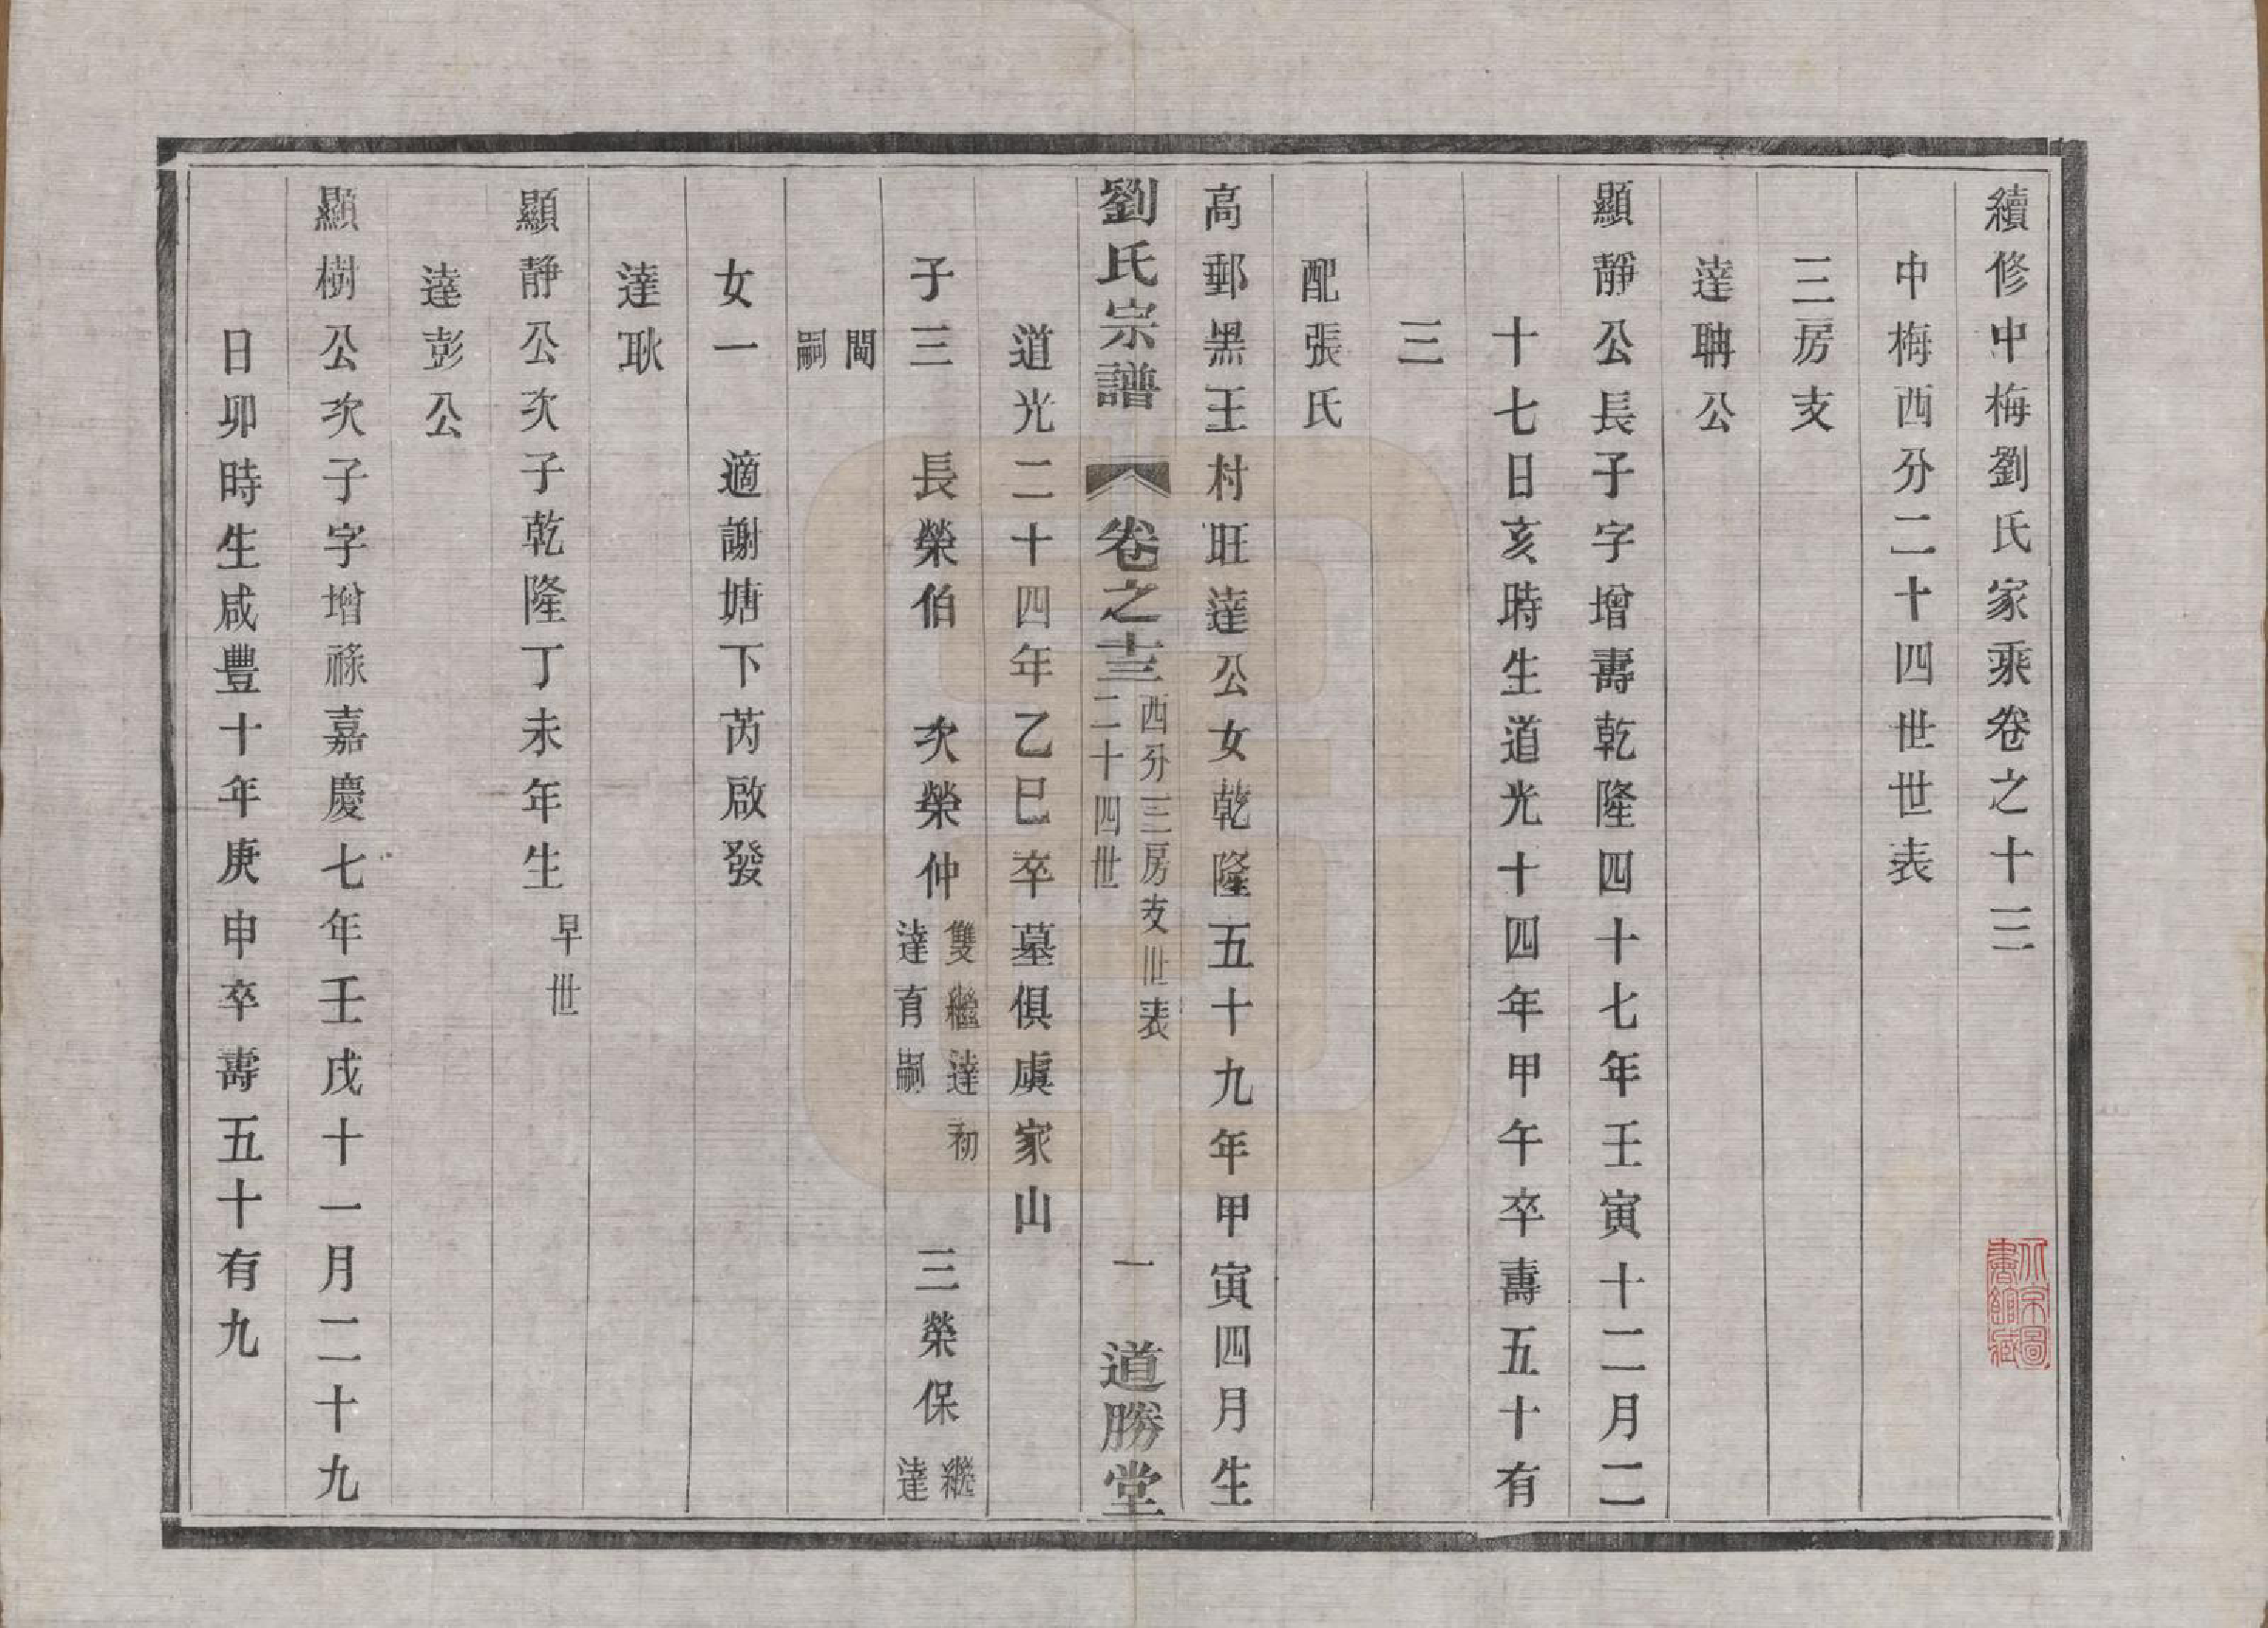 續修中梅劉氏家乘卷之十三
中梅西分二十四世世表
三房支
達聃公
顯靜公長子字增壽乾隆四十七年壬寅十二月二
十七日亥時生道光十四年甲午卒壽五十有
三
配張氏
高郵黑王村旺達公女乾隆五十九年甲寅四月生
劉氏宗譜 卷之十三 西分三房支世表 二十四世 一 道勝堂
道光二十四年乙巳卒墓俱虞家山
子三 長榮伯 次榮仲 雙繼達初達有嗣 三榮保 繼達
閶嗣
女一 適謝塘下芮啟發
達耿
顯靜公次子乾隆丁未年生 早世
達彭公
顯樹公次子字增祿嘉慶七年壬戌十一月二十九
日卯時生咸豐十年庚申卒壽五十有九